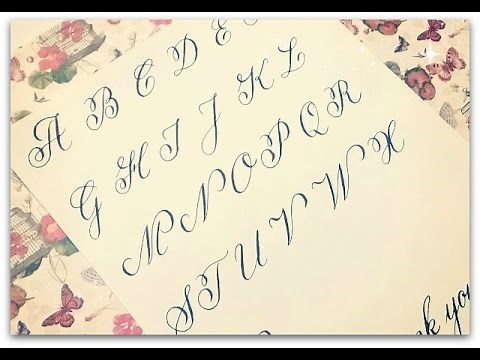 A B C D E
G H I J K L
M N O P Q R
S T U V W X
you